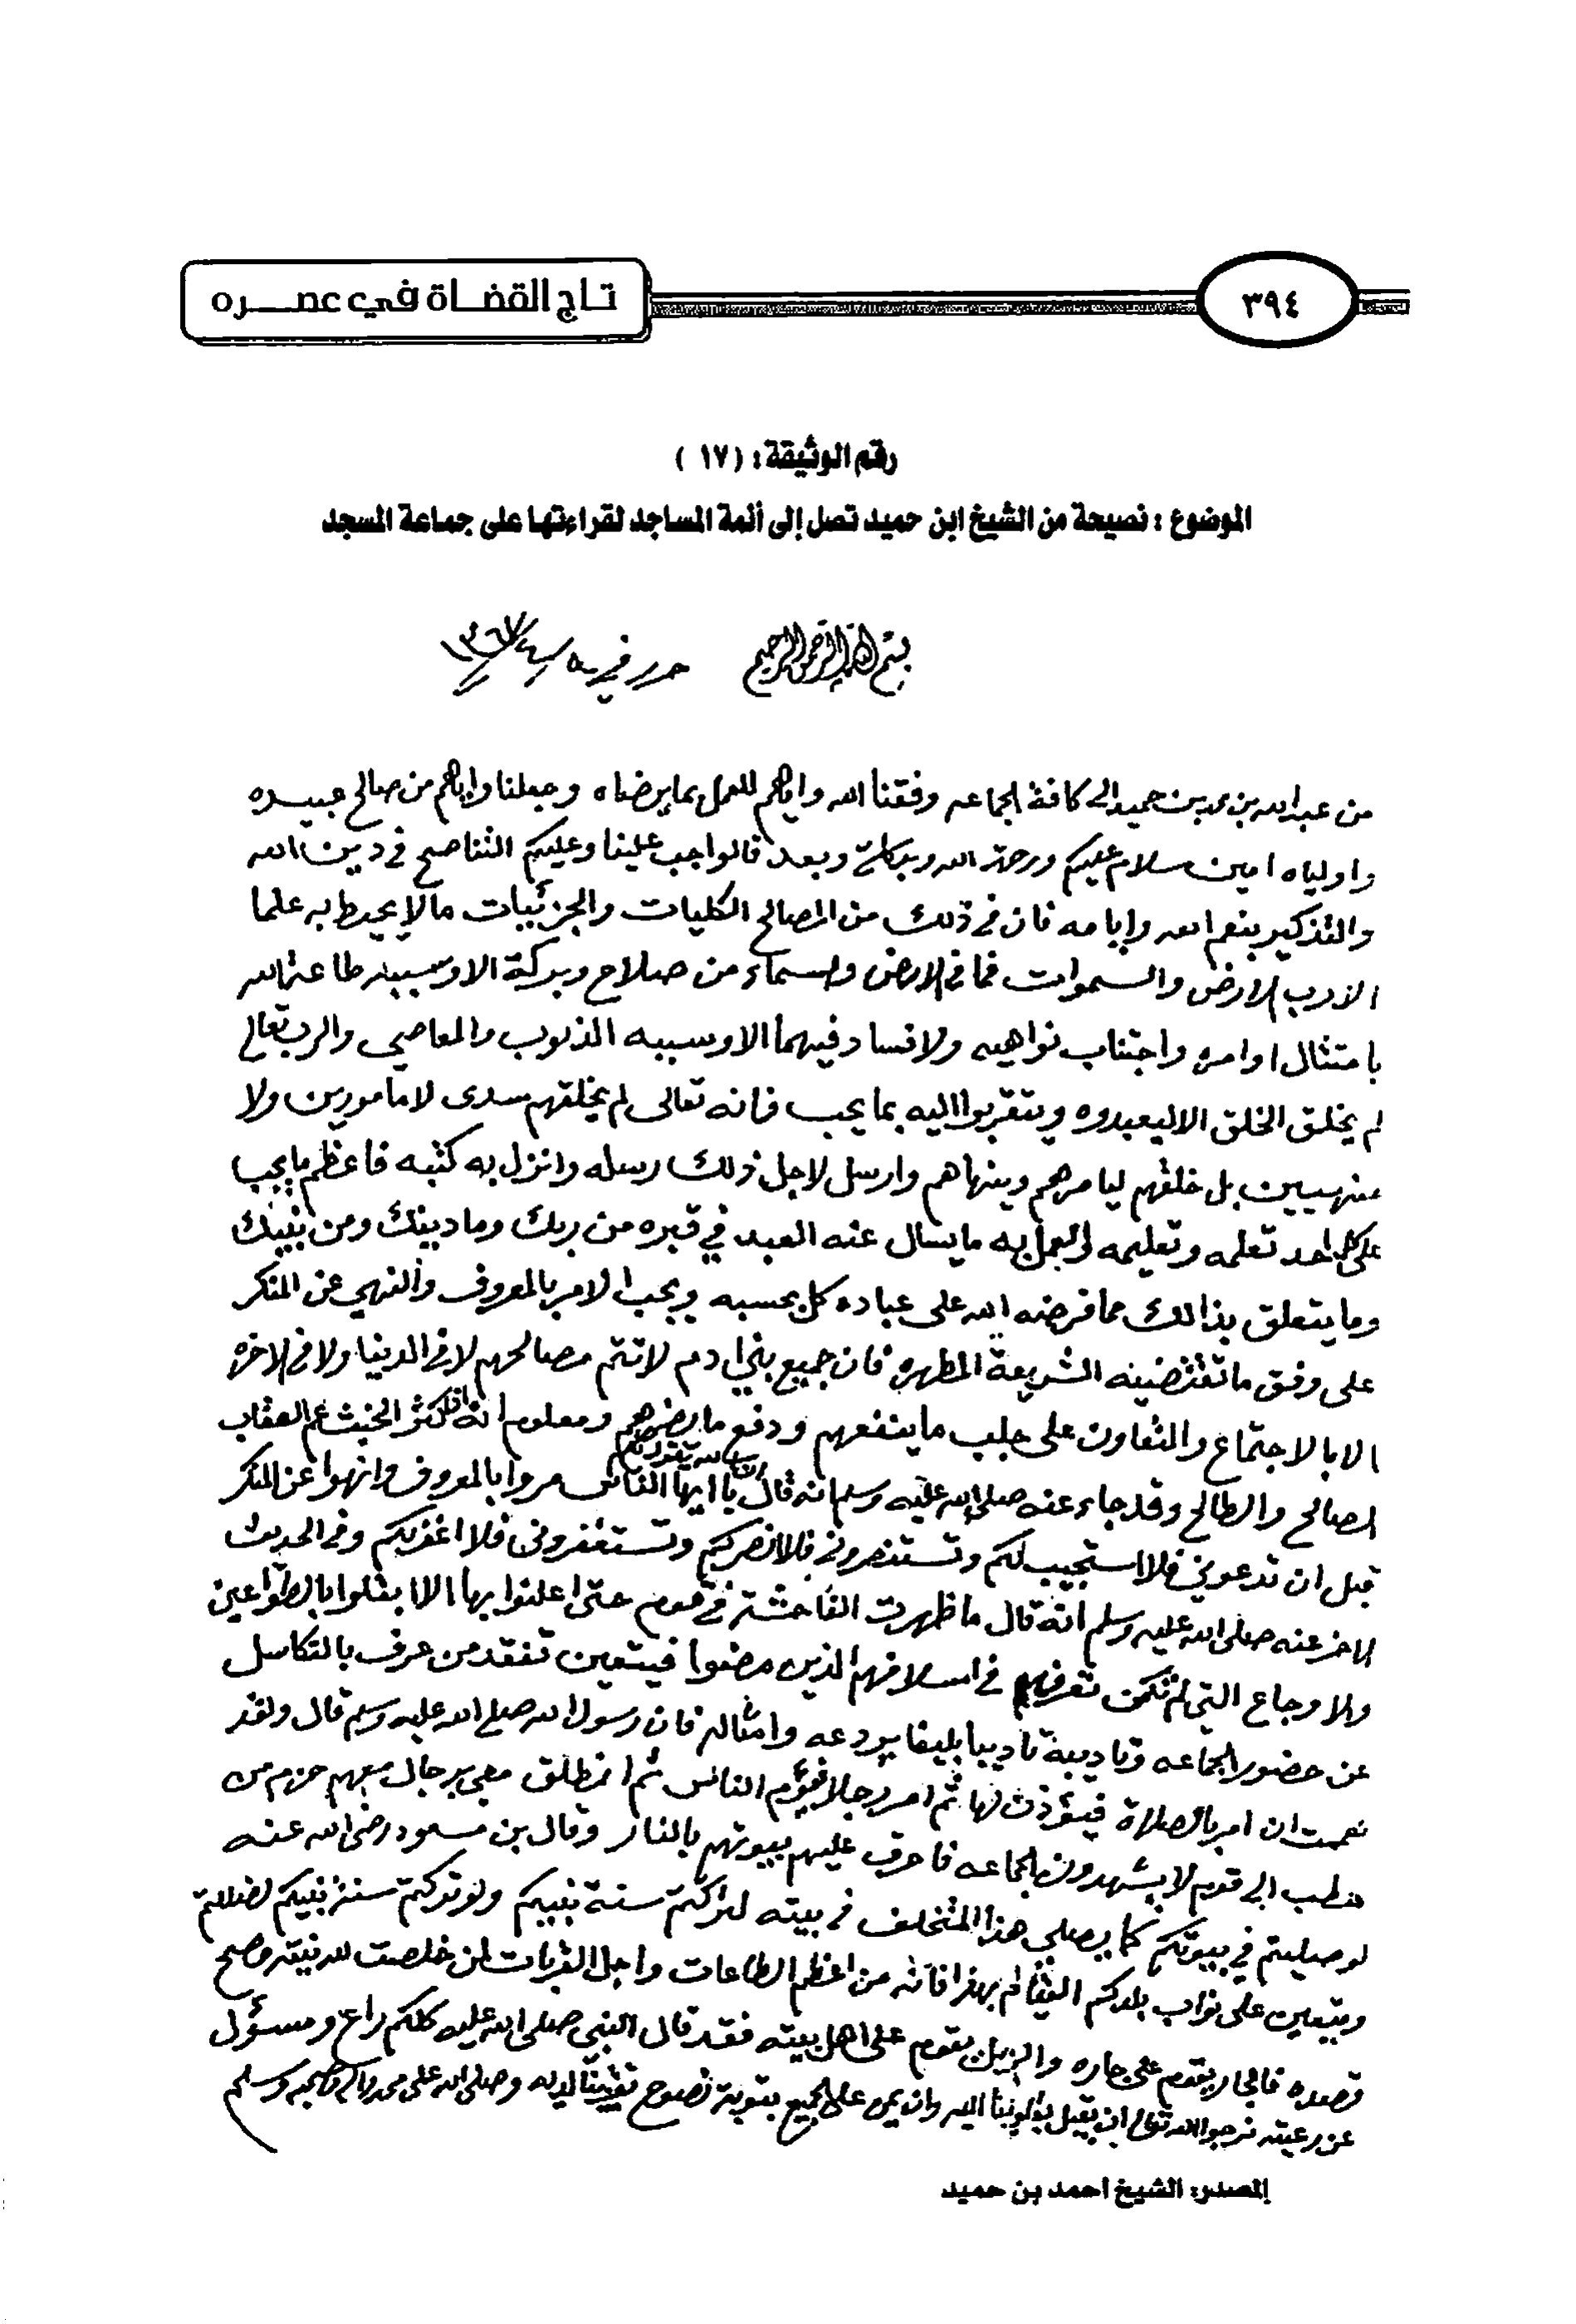 ٣٩٤
تاج القضاة في عصره
رقم الوثيقة: (١٧)
الموضوع: نصيحة من الشيخ ابن حميد تصل إلى أئمة المساجد لقراءتها على جماعة المسجد
بسم الله الرحمن الرحيم حرر في ١٣٦٧
من عبدالله بن محمد بن حميد الى كافة الجماعه وفقنا الله واياهم للعمل بما يرضاه وجعلنا واياهم من صالح عبيده
واولياه امين سلام عليكم ورحمة الله وبركاته وبعد فالواجب علينا وعليكم التناصح في دين الله
والتذكير بنعم الله وايامه فان في ذلك من المصالح الكليات والجزئيات مالا يحيط به علما
الا رب الارض والسموات فما في الارض والسماء من صلاح وبركة الا وسببه طاعة الله
بامتثال اوامره واجتناب نواهيه ولا فساد فيهما الا وسببه الذنوب والمعاصي والرب تعالى
لم يخلق الخلق الا ليعبدوه ويتقربوا اليه بما يحب فانه تعالى لم يخلقهم سدى لا مامورين ولا
منهيين بل خلقهم ليامرهم وينهاهم وارسل لاجل ذلك رسله وانزل به كتبه فاعظم ما يجب
على كل احد تعلمه وتعليمه والعمل به ما يسال عنه العبد في قبره من ربك وما دينك ومن نبيك
وما يتعلق بذالك مما فرضه الله على عباده كل بحسبه ويجب الامر بالمعروف والنهي عن المنكر
على وفق ما تقتضيه الشريعة المطهره فان جميع بني ادم لا تتم مصالحهم لا في الدنيا ولا في الاخره
الا بالاجتماع والتعاون على جلب ما ينفعهم ودفع ما يضرهم ومعلوم انه اذا كثر الخبث عم العقاب
الصالح والطالح وقد جاء عنه صلى الله عليه وسلم انه قال يا ايها الناس ان الله يقول لكم مروا بالمعروف وانهوا عن المنكر
قبل ان تدعوني فلا استجيب لكم وتستنصروني فلا انصركم وتستغفروني فلا اغفر لكم وفي الحديث
الاخر عنه صلى الله عليه وسلم انه قال ما ظهرت الفاحشة في قوم حتى اعلنوا بها الا ابتلوا بالطواعين
والاوجاع التي لم تكن تعرف في اسلافهم الذين مضوا فيتعين تفقد من عرف بالتكاسل
عن حضور الجماعه وتاديبه تاديبا بليغا يردعه وامثاله فان رسول الله صلى الله عليه وسلم قال ولقد
هممت ان امر بالصلاة فيؤذن لها ثم امر رجلا فيؤم الناس ثم انطلق معي برجال معهم حزم من
حطب الى قوم لا يشهدون الجماعه فاحرق عليهم بيوتهم بالنار وقال بن مسعود رضي الله عنه
لو صليتم في بيوتكم كما يصلي هذا المتخلف في بيته لتركتم سنة نبيكم ولو تركتم سنة نبيكم لضللتم
ويتعين على نواب بلدكم القيام بهذا فانه من اعظم الطاعات واجل القربات لمن خلصت لله نيته وصح
قصده فالجار يقوم على جاره والرجل يقوم على اهل بيته فقد قال النبي صلى الله عليه كلكم راع ومسؤل
عن رعيته نرجوا الله تعالى ان يقبل بقلوبنا اليه وان يمن على الجميع بتوبة نصوح وصلى الله على محمد واله وصحبه وسلم
المصدر: الشيخ احمد بن حميد